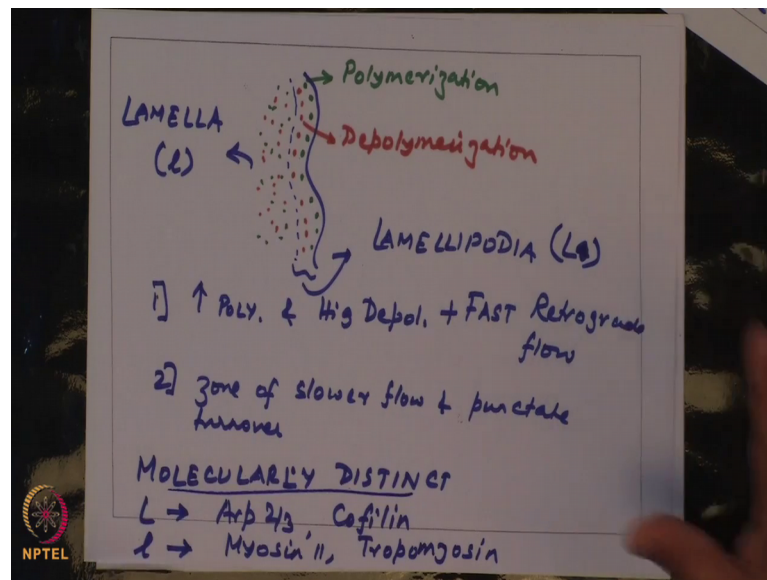 Polymerization
LAMELLA
(l)
Depolymerization
LAMELLIPODIA (L)
1] ↑ Poly. & Hig Depol. + FAST Retrograde
flow
2] Zone of slower flow & punctate
turnover
MOLECULARLY DISTINCT
L → Arp 2/3 Cofilin
l → Myosin II, Tropomyosin
NPTEL